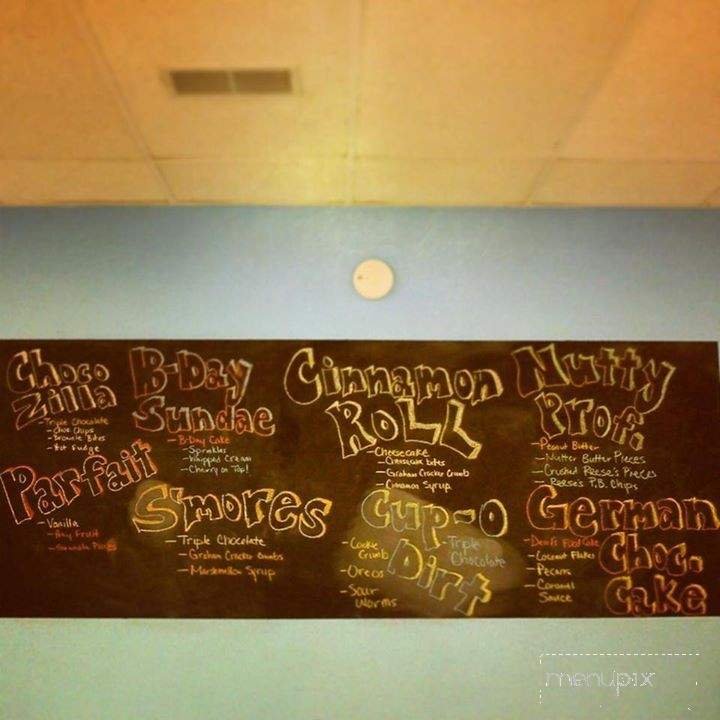 Choco
Zilla
- Triple Chocolate
- Choc Chips
- Brownie Bites
- Hot Fudge
B-Day
Sundae
- B-Day Cake
- Sprinkles
- Whipped Cream
- Cherry on Top!
Cinnamon
Roll
- Cheesecake
- Cheesecake bites
- Graham Cracker Crumb
- Cinnamon Syrup
Nutty
Prof.
- Peanut Butter
- Nutter Butter Pieces
- Crushed Reese's Pieces
- Reese's P.B. Chips
Parfait
- Vanilla
- Any Fruit
S'mores
- Triple Chocolate
- Graham Cracker Crumbs
- Marshmallow Syrup
Cup-O
Dirt
- Triple
Chocolate
- Cookie
Crumb
- Oreos
- Sour
Worms
German
Choc.
Cake
- Devil's Food Cake
- Coconut Flakes
- Pecans
- Caramel
Sauce
menupix